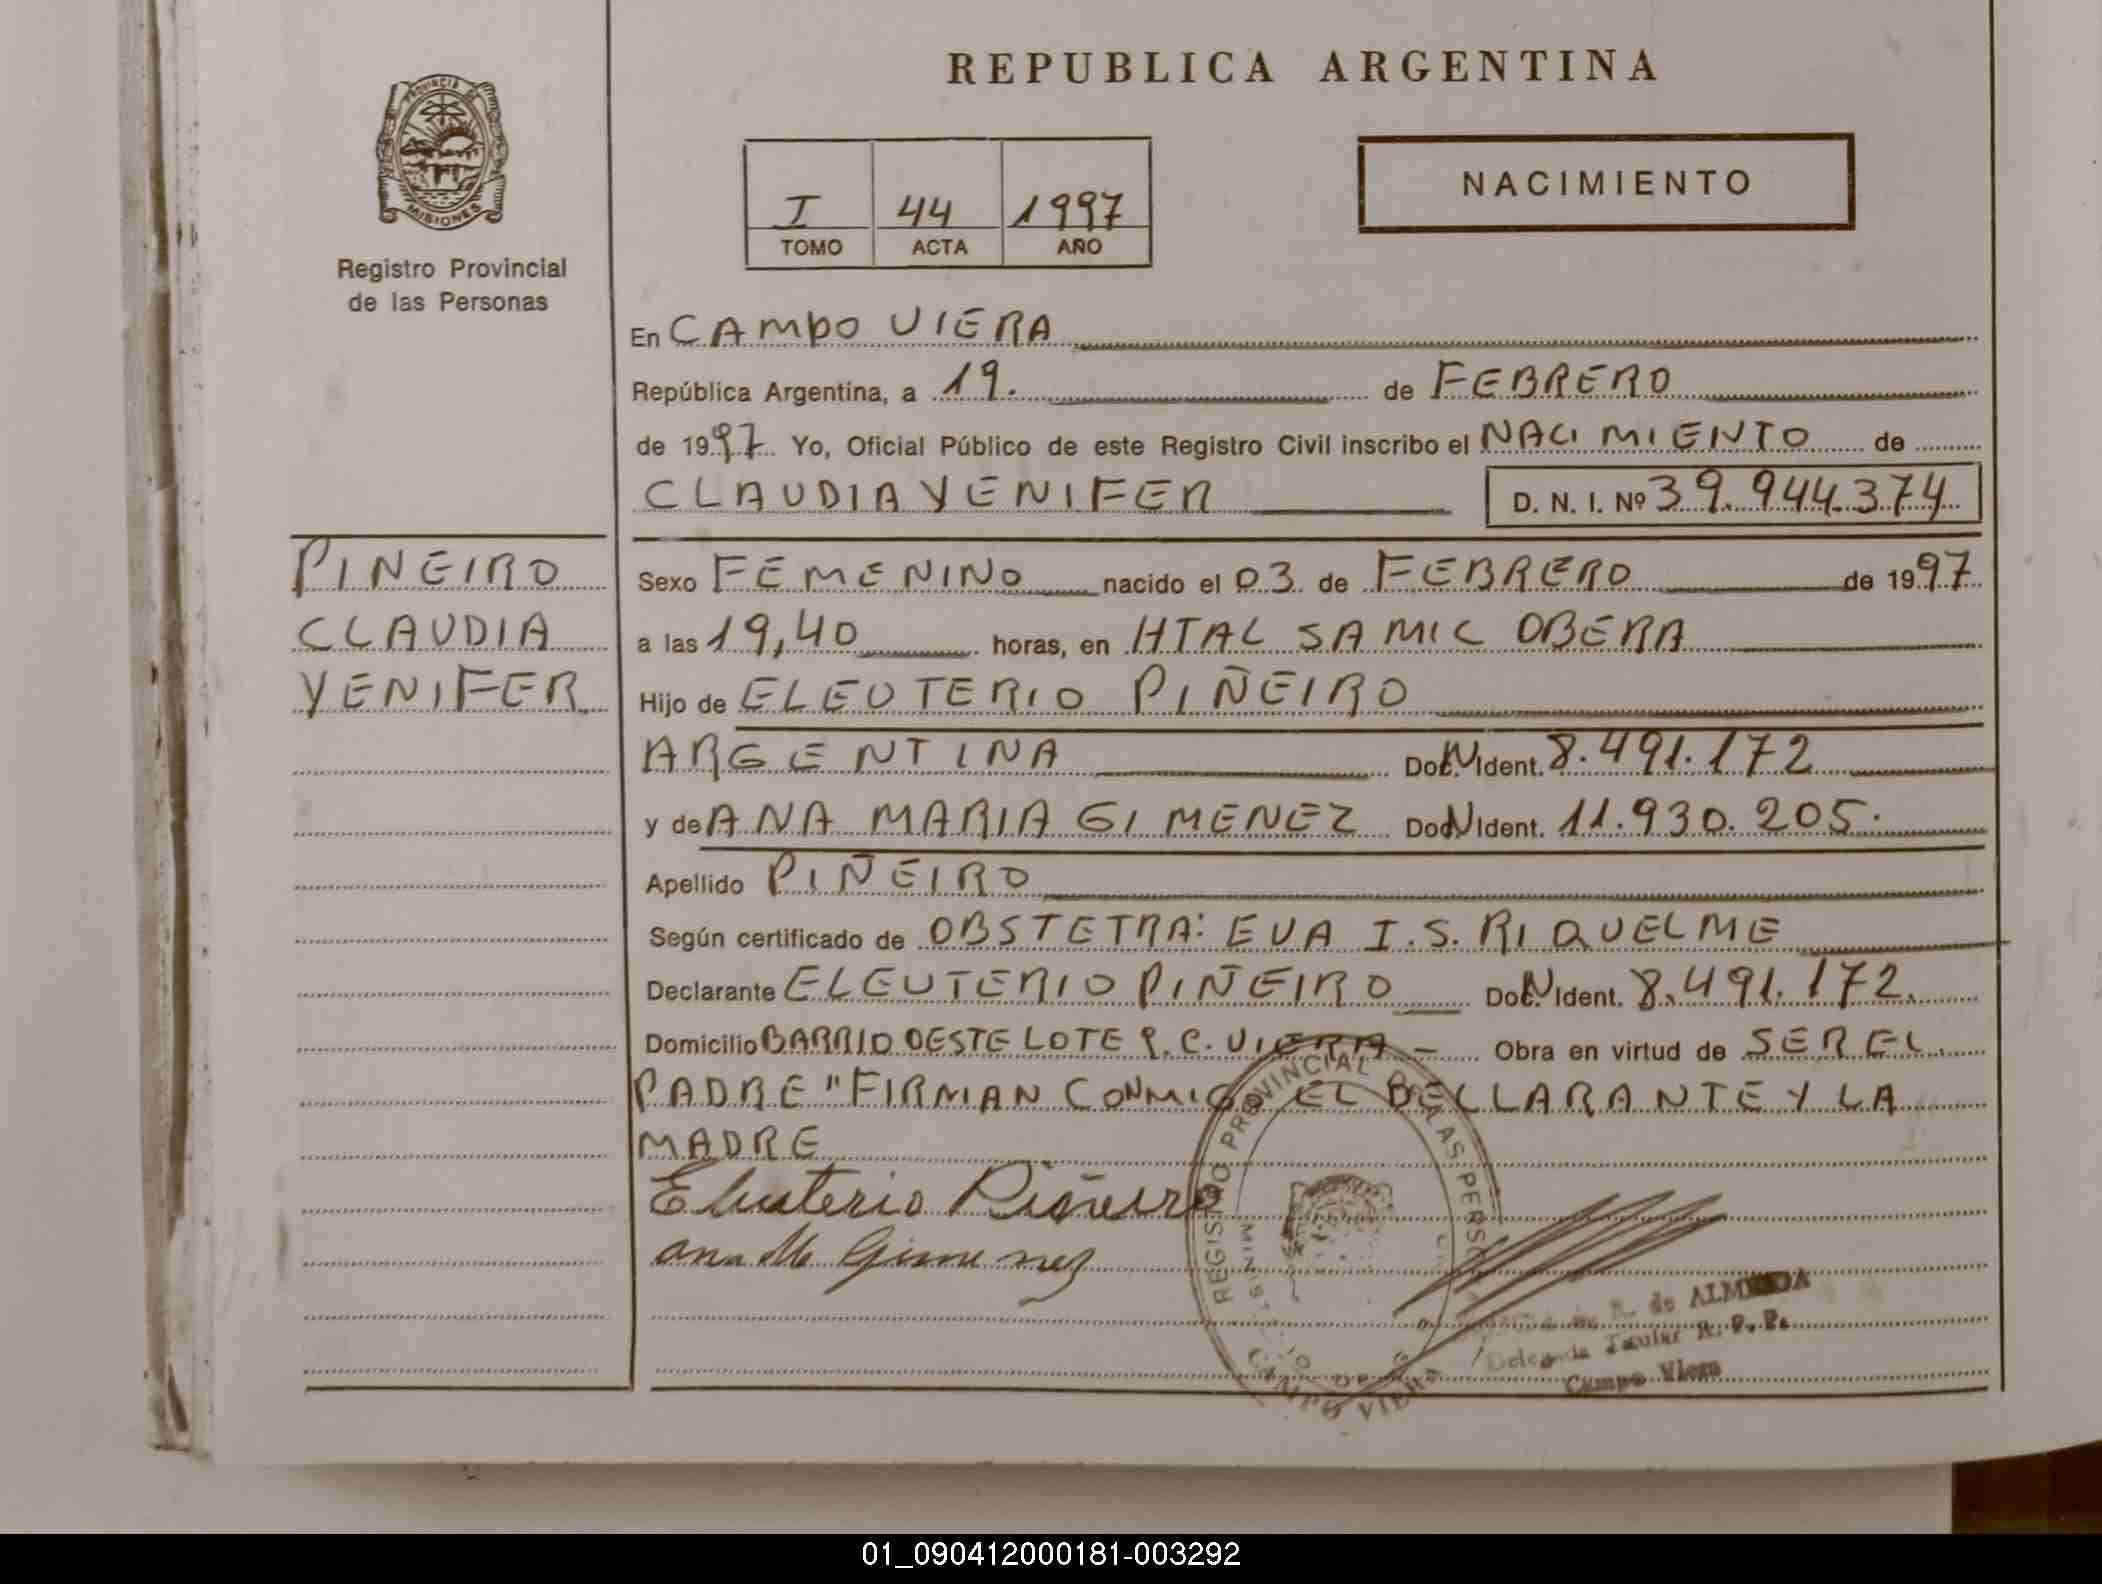 PROVINCIA DE
MISIONES
Registro Provincial
de las Personas
REPUBLICA ARGENTINA
I 44 1997
TOMO ACTA AÑO
NACIMIENTO
En CAMPO VIERA
República Argentina, a 19. de FEBRERO
de 1997 Yo, Oficial Público de este Registro Civil inscribo el NACIMIENTO de
CLAUDIA YENIFER D. N. I. Nº 39.944.374
PINEIRO
CLAUDIA
YENIFER
Sexo FEMENINO nacido el 03 de FEBRERO de 1997
a las 19,40 horas, en HTAL SAMIC OBERA
Hijo de ELEUTERIO PIÑEIRO
ARGENTINA Doc. N Ident. 8.491.172
y de ANA MARIA GIMENEZ Doc. N Ident. 11.930.205.
Apellido PIÑEIRO
Según certificado de OBSTETRA: EVA I.S. RIQUELME
Declarante ELEUTERIO PIÑEIRO Doc. N Ident. 8.491.172.
Domicilio BARRIO OESTE LOTE 9. C. VIERA - Obra en virtud de SER EL
PADRE "FIRMAN CONMIGO EL DECLARANTE Y LA
MADRE
Eleuterio Piñeiro
ana M Gimenez
REGISTRO PROVINCIAL DE LAS PERSONAS
CAMPO VIERA
de ALMEIDA
Delegada Titular R. P. P.
Campo Viera
01_090412000181-003292